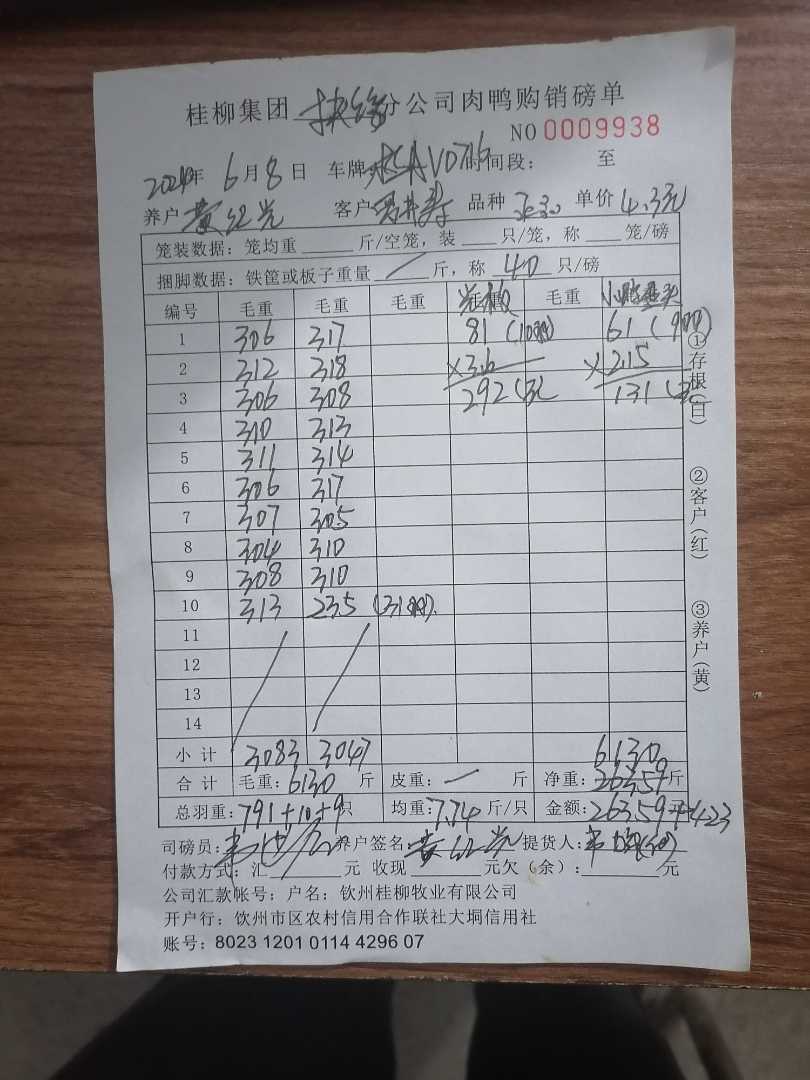 桂柳集团 钦缘 分公司肉鸭购销磅单
NO 0009938
2024年 6月8日 车牌 AV0716 时间段: 至
养户 黄红光 客户 品种 单价 4.3元
笼装数据: 笼均重 斤/空笼, 装 只/笼, 称 笼/磅
捆脚数据: 铁筐或板子重量 / 斤, 称 40 只/磅
编号 毛重 毛重 毛重 毛重
1 306 317 81 (10只) 61 (9只)
2 312 318 ×3.6 ×2.15
3 306 308 292 (元 131 (元
4 310 313
5 311 314
6 306 317
7 307 305
8 304 310
9 308 310
10 313 235 (31只).
11
12
13
14
小计 3083 3047 6130
合计 毛重: 6130 斤 皮重: — 斤 净重: 26359 斤
总羽重: 791+10+9 只 均重: 7.74 斤/只 金额: 26359 元+423
司磅员: 养户签名: 黄红光 提货人:
付款方式: 汇 元 收现 元欠(余): 元
公司汇款帐号: 户名: 钦州桂柳牧业有限公司
开户行: 钦州市区农村信用合作联社大垌信用社
账号: 8023 1201 0114 4296 07
①存根(白)
②客户(红)
③养户(黄)